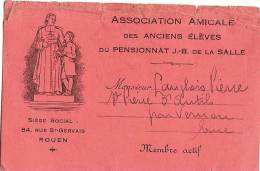 ASSOCIATION AMICALE
DES ANCIENS ÉLÈVES
DU PENSIONNAT J.-B. DE LA SALLE
Monsieur Langlois Pierre
St Pierre d'Autils
par Vernon
Eure
Membre actif
SIÈGE SOCIAL :
84, RUE ST-GERVAIS
ROUEN